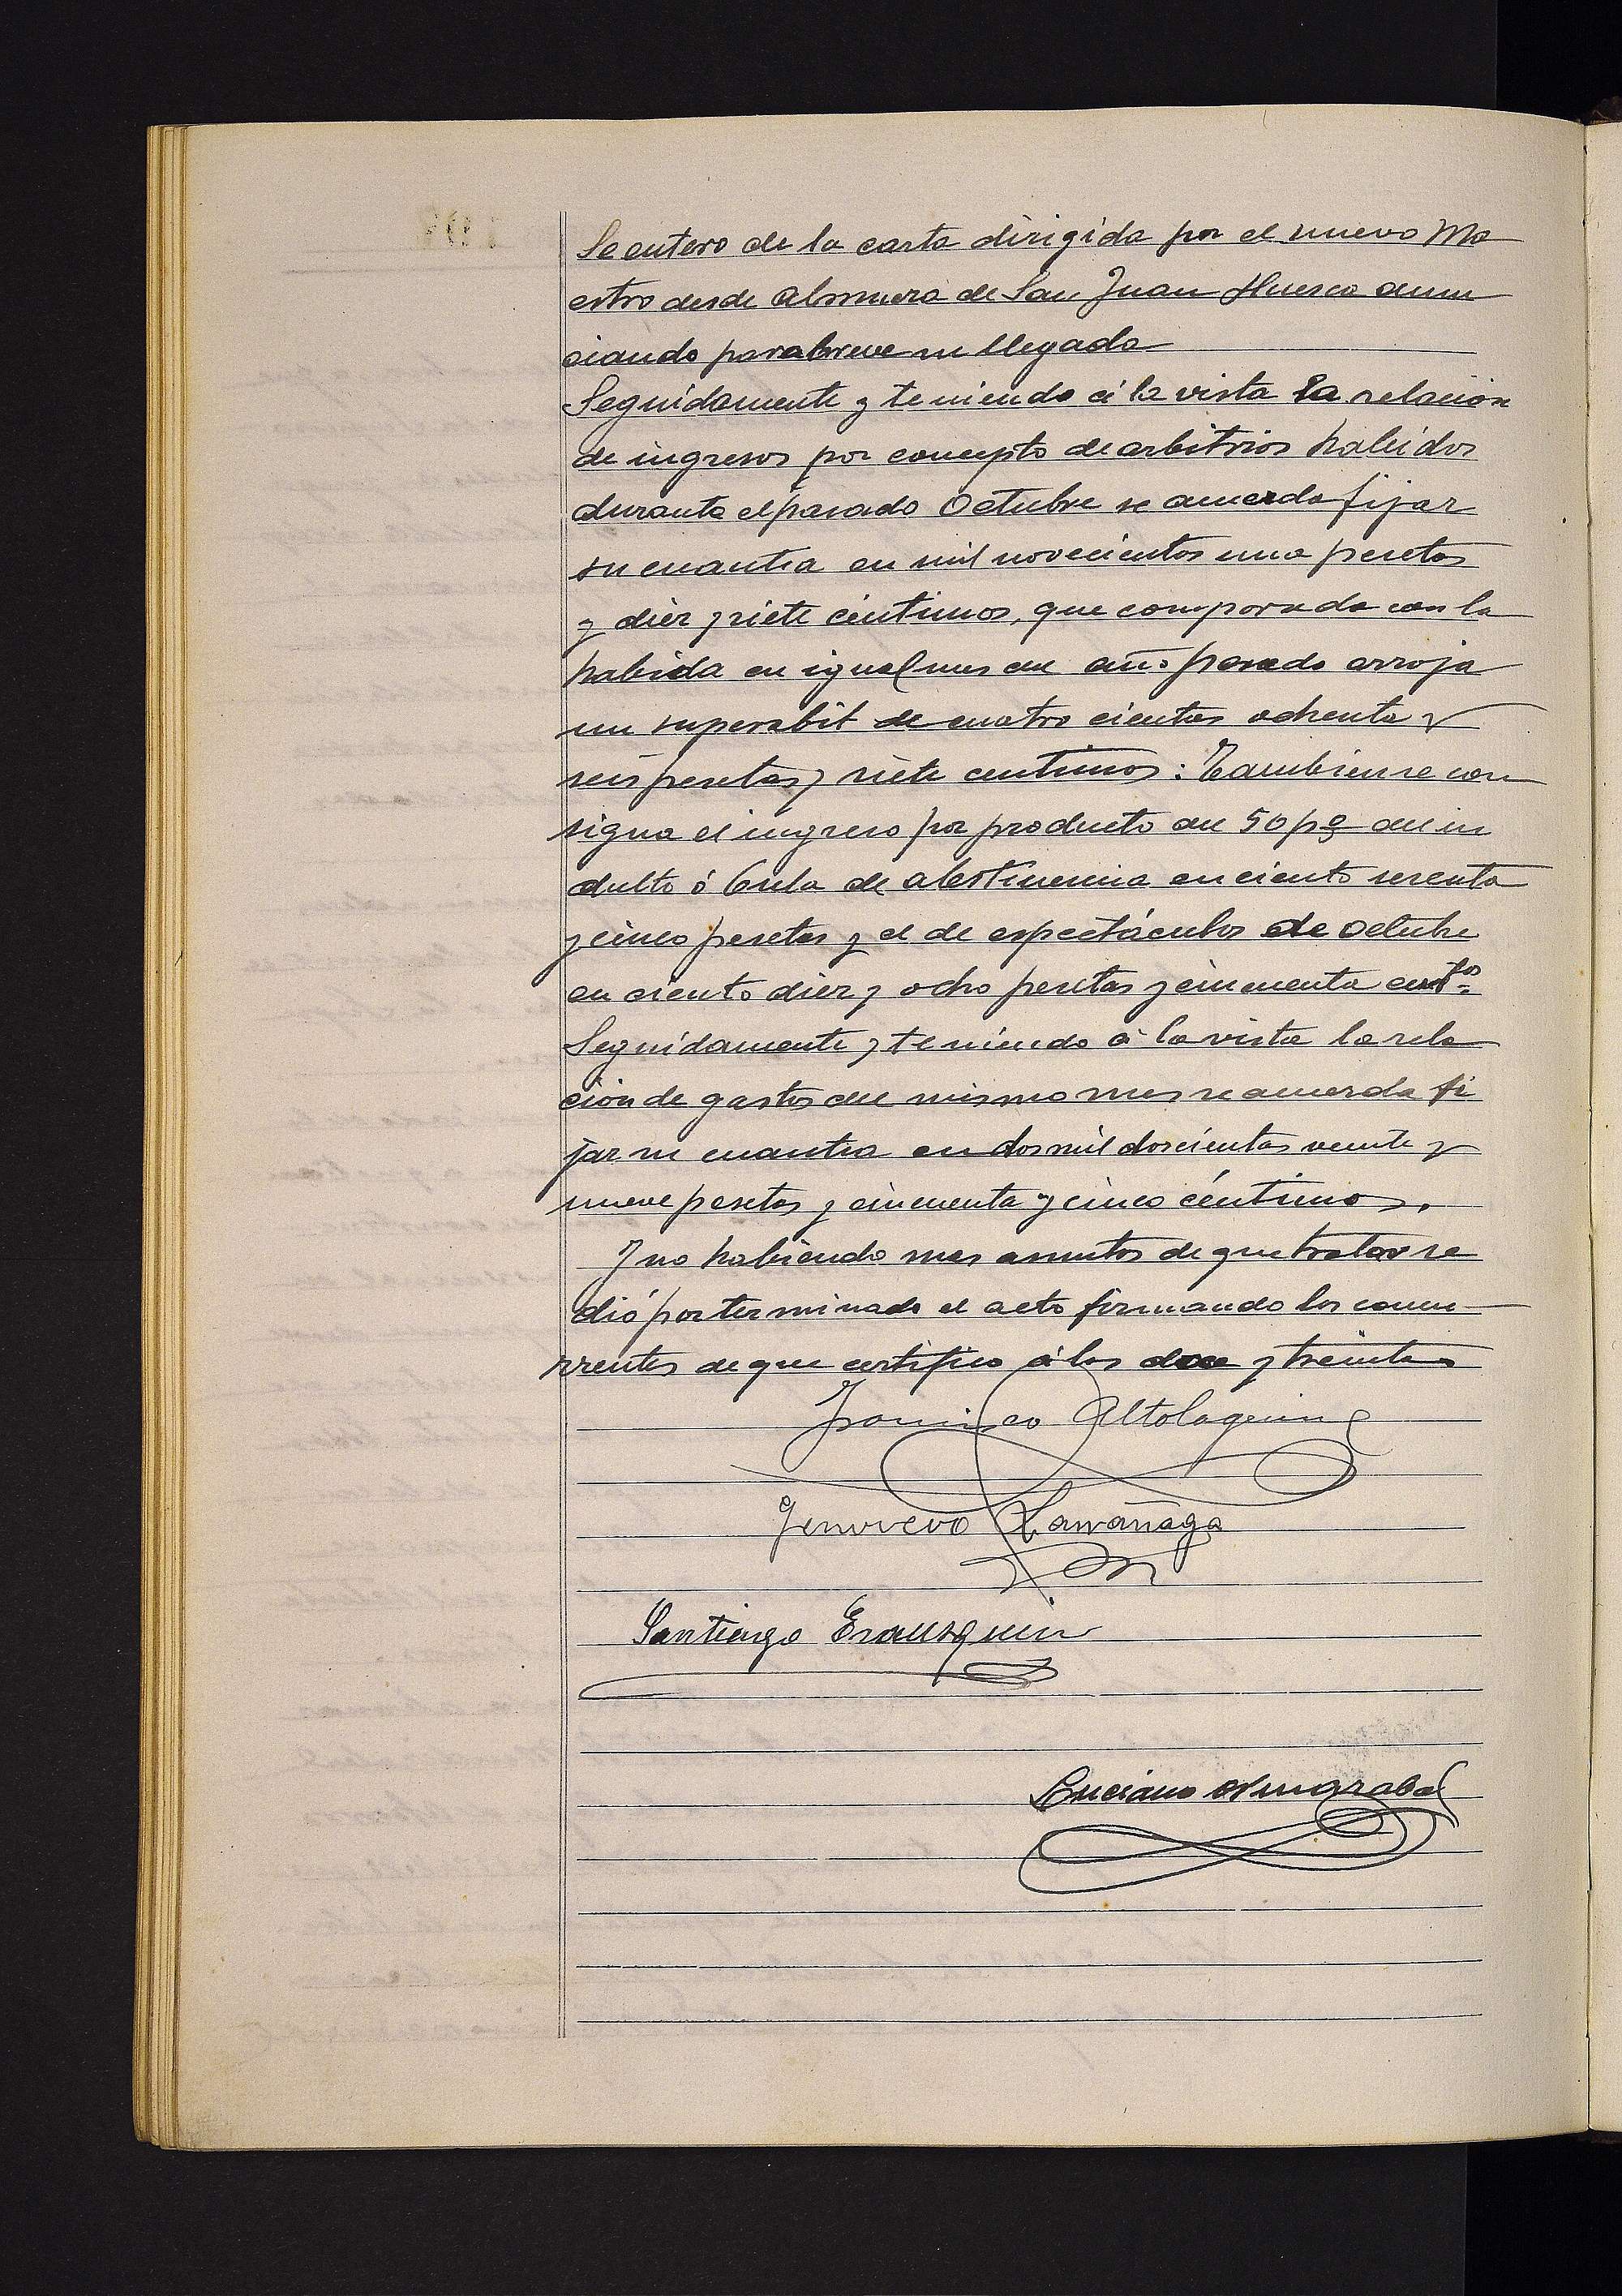 Se entero de la carta dirigida por el nuevo Ma
estro desde Almuera de San Juan Huesca anun
ciando para breve su llegada
Seguidamente y teniendo á la vista la relación
de ingresos por concepto de arbitrios habidos
durante el pasado Octubre se acuerda fijar
su cuantia en mil novecientos una pesetas
y diez y siete céntimos, que comparada con la
habida en igual mes del año pasado arroja
un superabit de cuatro cientas ochenta y
seis pesetas y siete centimos: Tambien se con
signa el ingreso por producto del 50 p% del in
dulto ó bula de abstinencia en ciento sesenta
y cinco pesetas y el de espectáculos de Octubre
en ciento diez y ocho pesetas y cincuenta centos
Seguidamente y teniendo á la vista la rela
cion de gastos del mismo mes se acuerda fi
jar su cuantia en dos mil doscientas veinte y
nueve pesetas y cincuenta y cinco céntimos.
Y no habiendo mas asuntos de que tratar se
dió por terminado el acto firmando los concu-
rrentes de que certifico á las doce y treinta
Francisco Altolaguirre
Genovevo Larrañaga
Santiago Erausquin
Luciano